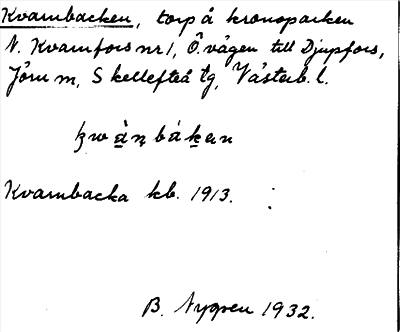 Kvarnbacken, torp å kronoparken
N. Kvarnfors nr 1, Ö. vägen till Djupfors,
Jörn m, Skellefteå tg, Västerb. l.
kwàṇbákan
Kvarnbacka kb. 1913.
B. Nygren 1932.